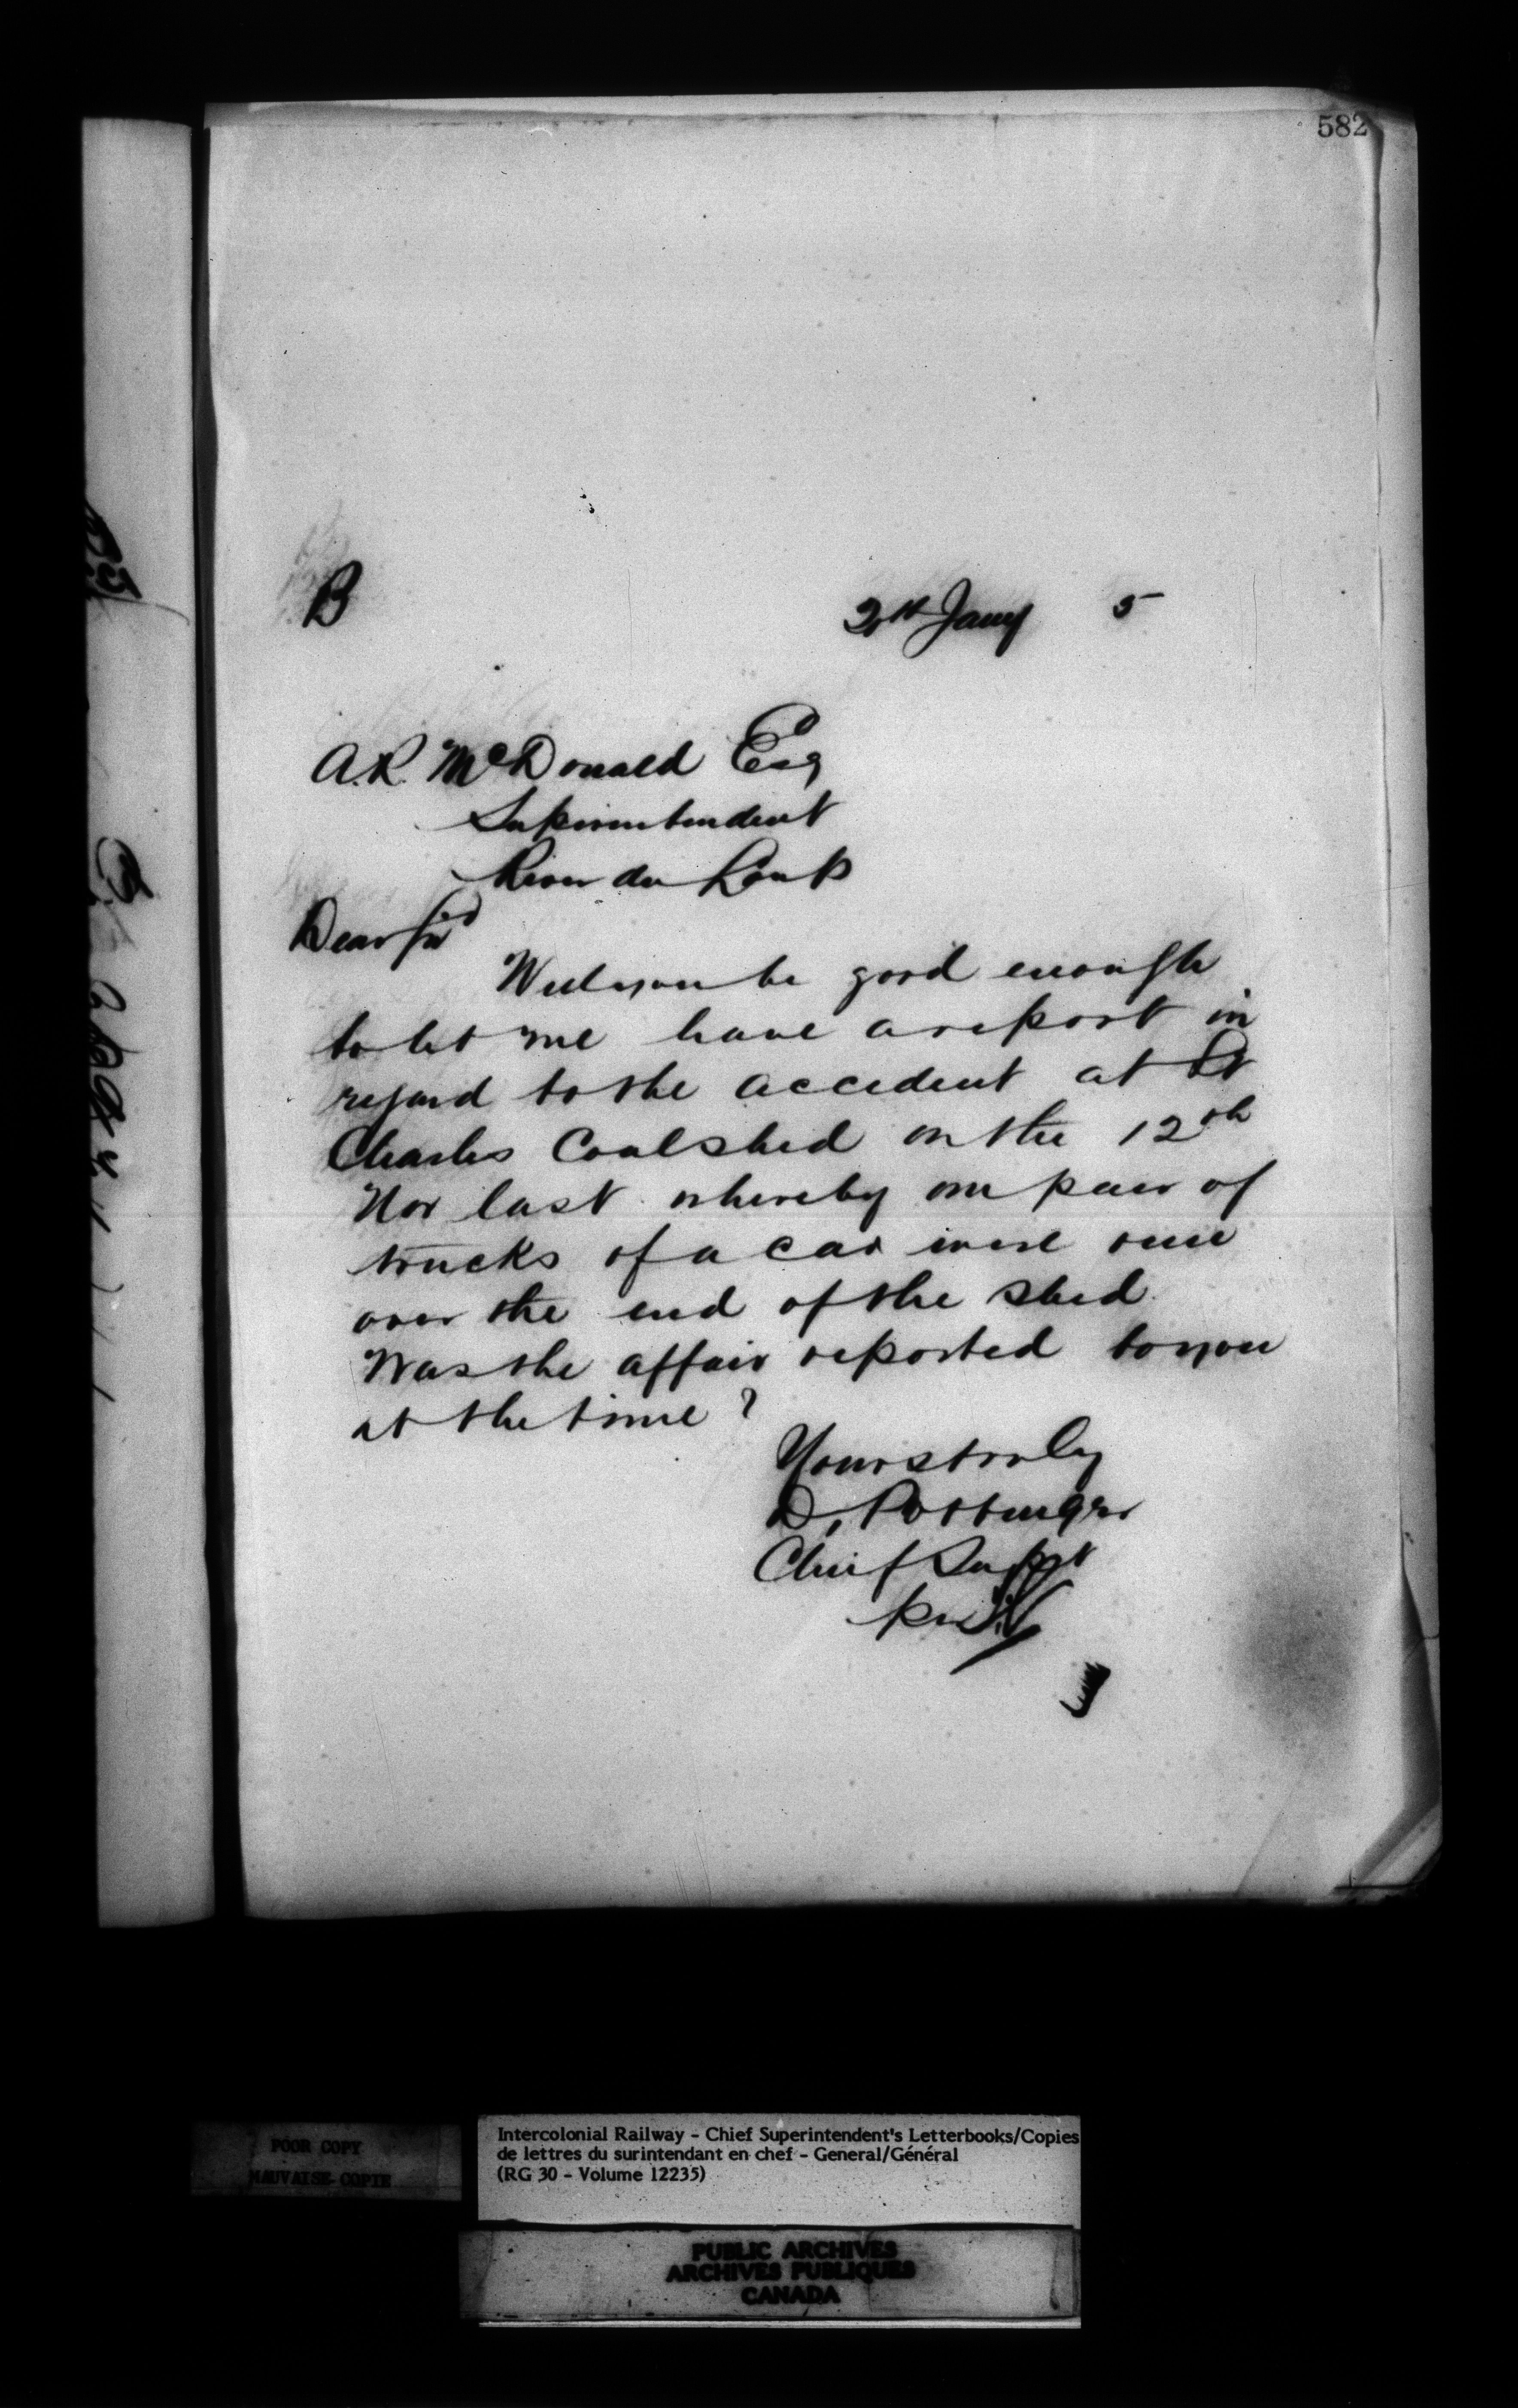 582
B
Jany 5
A.R. McDonald Esq
Superintendent
River du Loup
Dear Sir
Will you be good enough
to let me have a report in
regard to the accident at St
Charles Coal shed on the 12th
Nov last whereby one pair of
trucks of a car were run
over the end of the shed.
Was the affair reported to you
at the time?
Yours truly
D. Pottinger
Chief Supt
per
POOR COPY
MAUVAISE COPIE
Intercolonial Railway - Chief Superintendent's Letterbooks/Copies
de lettres du surintendant en chef - General/Général
(RG 30 - Volume 12235)
PUBLIC ARCHIVES
ARCHIVES PUBLIQUES
CANADA